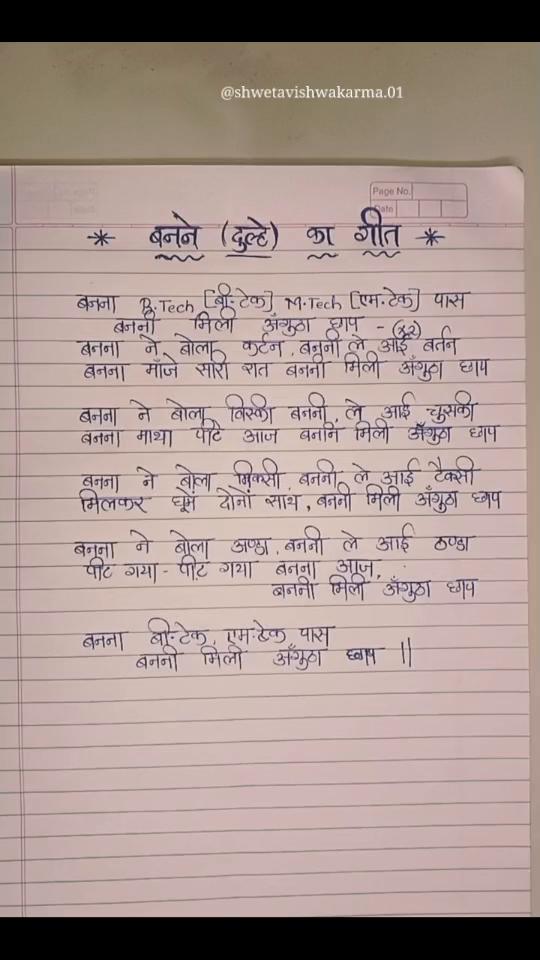 @shwetavishwakarma.01
Page No.
Date
* बनने (दुल्हे) का गीत *
बनना B.Tech [बी.टेक] M.Tech [एम.टेक] पास
बननी मिली अँगुठा छाप - (x2)
बनना ने बोला कर्टन, बननी ले आई बर्तन
बनना माँजे सारी रात बननी मिली अँगुठा छाप
बनना ने बोला विस्की बननी ले आई चुसकी
बनना माथा पीटे आज बननि मिली अँगुठा छाप
बनना ने बोला मिक्सी बननी ले आई टैक्सी
मिलकर घूमें दोनों साथ, बननी मिली अँगुठा छाप
बनना ने बोला अण्डा, बननी ले आई ठण्डा
पीट गया - पीट गया बनना आज,
बननी मिली अँगुठा छाप
बनना बी.टेक, एम.टेक पास
बननी मिली अँगुठा छाप ||